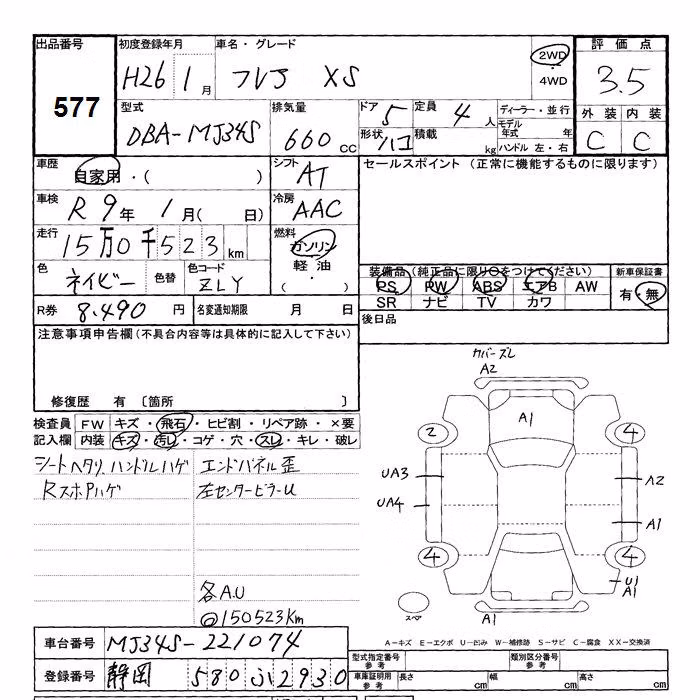 出品番号 初度登録年月 車名・グレード 2WD 評価点
577 H26 1月 フレア XS ・ 4WD 3.5
型式 排気量 ドア 5 定員 4人 ディーラー・並行 外装 内装
DBA-MJ34S 660cc 形状 ハコ 積載 kg モデル年式 年 C C
ハンドル 左・右
車歴 自家用・( ) シフト AT セールスポイント (正常に機能するものに限ります)
車検 R9年 1月( 日) 冷房 AAC
走行 15万0千523km 燃料 ガソリン
軽油
( )
色 ネイビー 色替 色コード ZLY
装備品(純正品に限り○をつけてください) 新車保証書
PS PW ABS エアB AW 有・無
SR ナビ TV カワ
R券 8.490円 名変通知期限 月 日 後日品
注意事項申告欄(不具合内容等は具体的に記入して下さい)
修復歴 有 〔箇所 〕
検査員 FW キズ・飛石・ヒビ割・リペア跡・×要
記入欄 内装 キズ・汚レ・コゲ・穴・スレ・キレ・破レ
シートヘタリ、ハンドルハゲ エンドパネル歪
RスポPハゲ 左センターピラーU
各A.U
@150523Km
カバーズレ
A2
A1
2 4
UA3 A2
UA4 A1
4 4
U1
A1
スペア A1
A-キズ E-エクボ U-凹み W-補修跡 S-サビ C-腐食 XX-交換済
車台番号 MJ34S-221074
登録番号 静岡 580 ふ 2930
型式指定番号 参考 類別区分番号 参考
車庫証明用 参考 長さ cm 幅 cm 高さ cm